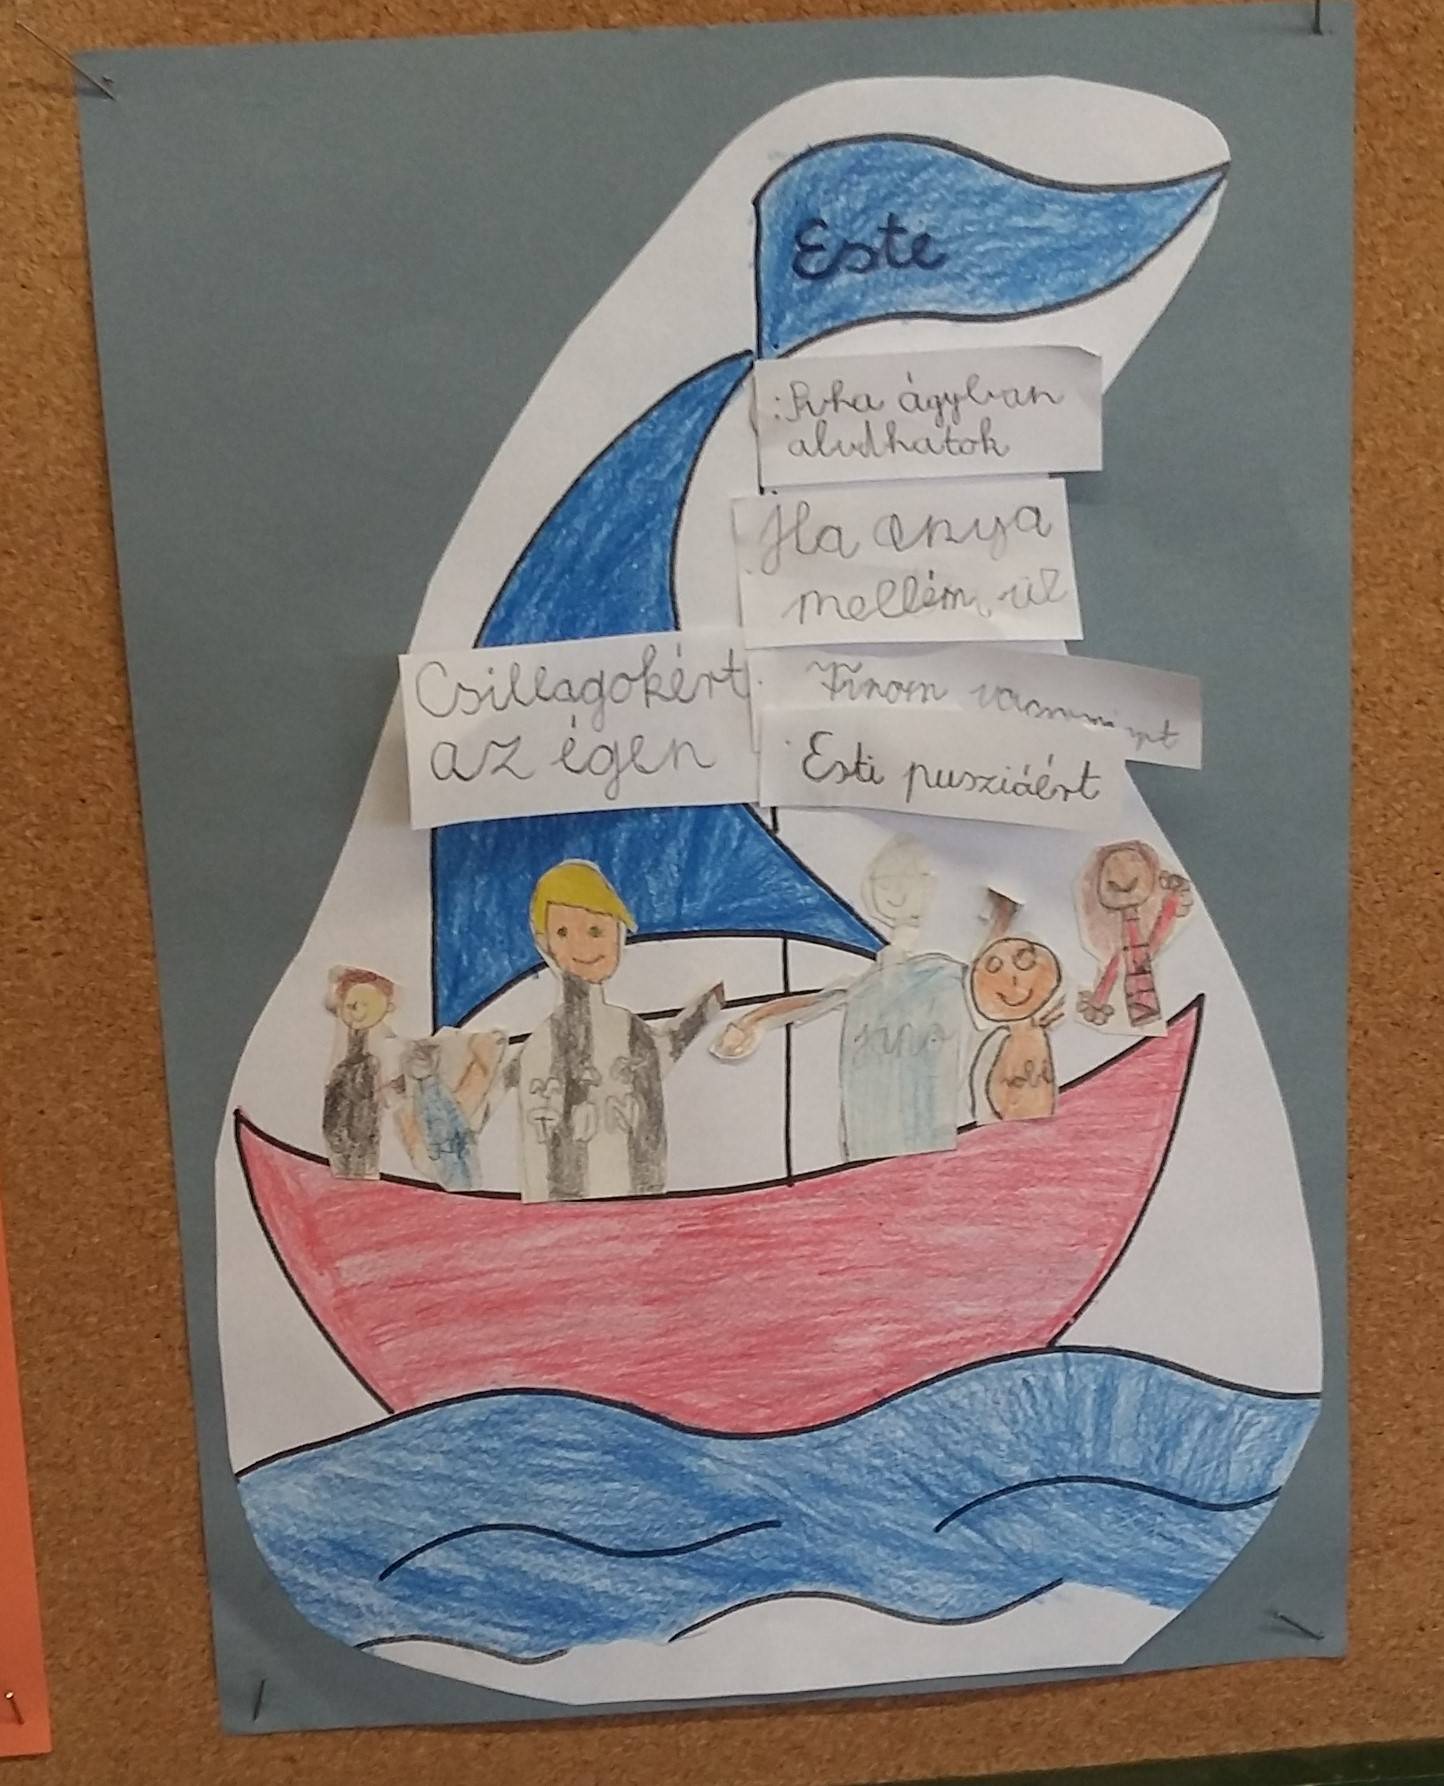 Este
:Puha ágyban
aludhatok
Ha anya
mellém ül
Csillagokért
az égen
Finom
Esti pusziáért